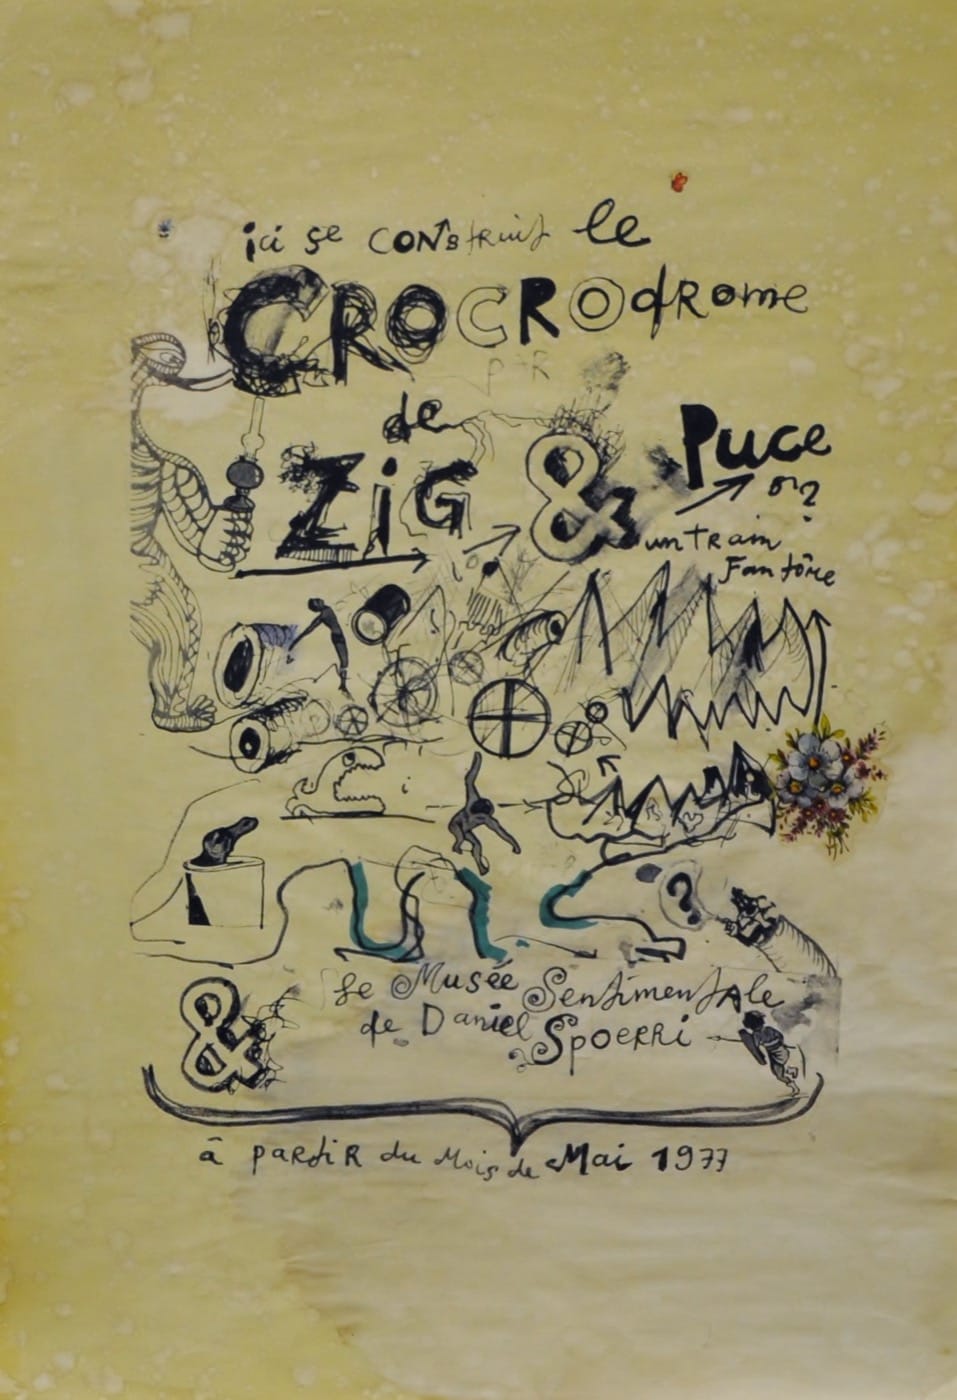 ici se construit le
CROCROdrome
de
ZiG & Puce
ou?
un train
Fantôme
?
& Le Musée Sentimentale
de Daniel Spoerri
à partir du Mois de Mai 1977